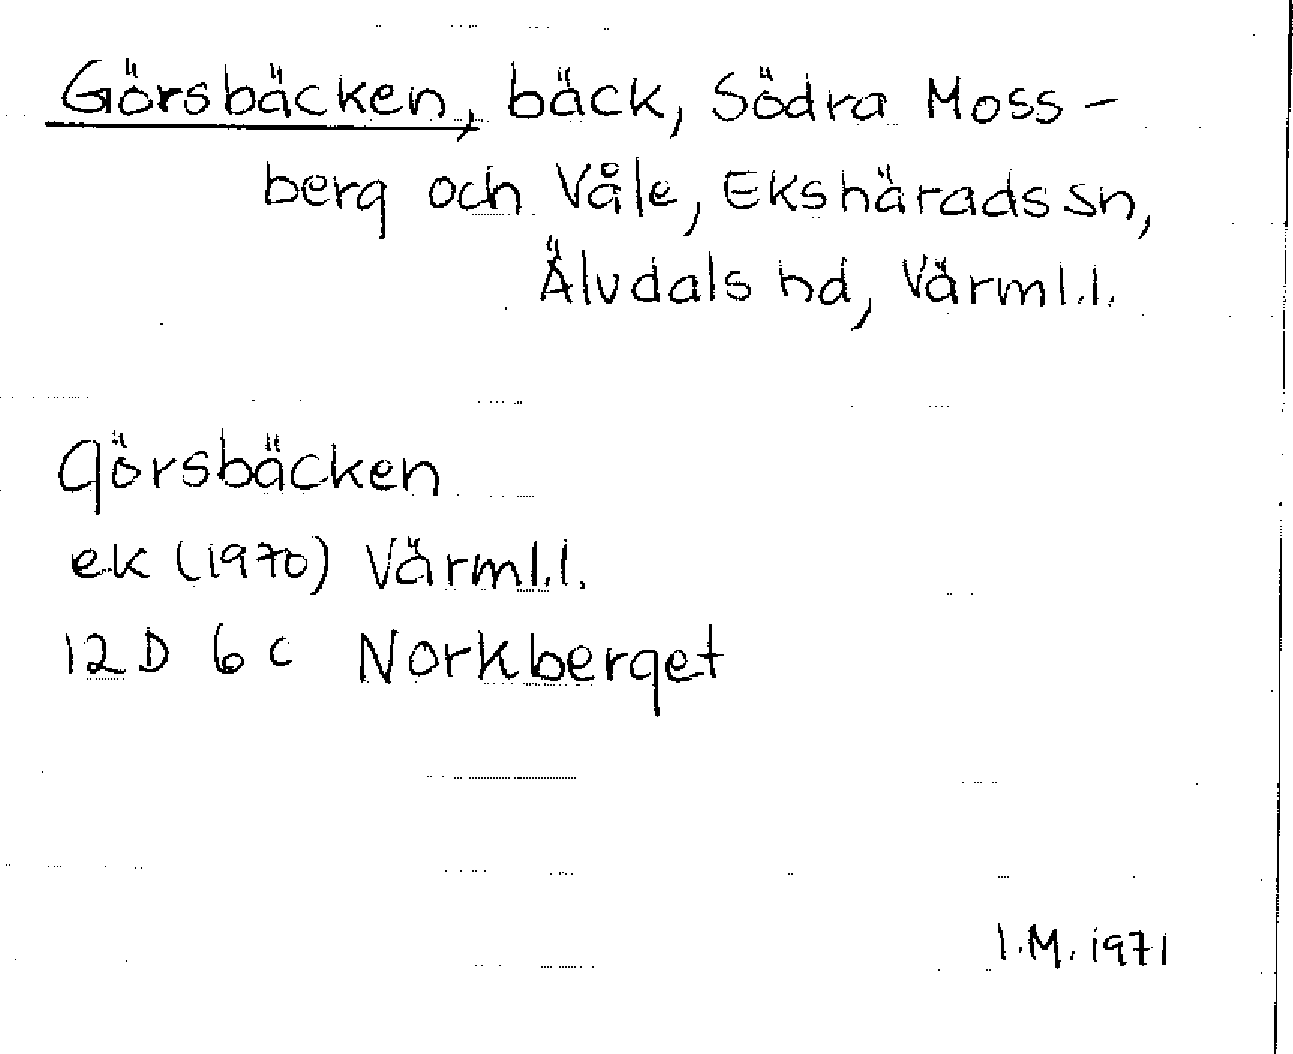 Görsbäcken, bäck, Södra Moss-
berg och Våle, Ekshärads sn,
Älvdals hd, Värml.l.
Görsbäcken
ek (1970) Värml.l.
12D 6c Norkberget
I.M. 1971